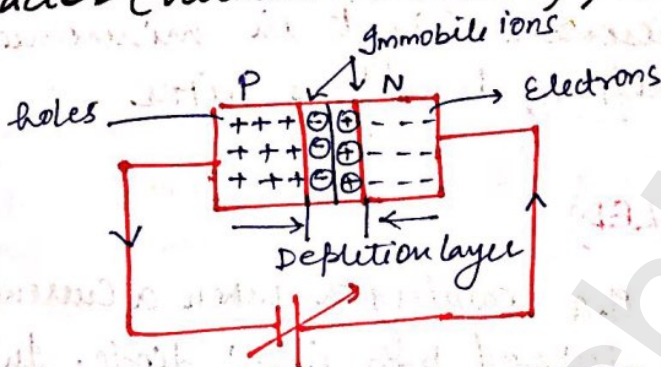 Immobile ions
P N
holes Electrons
+ + + ⊖ ⊕ - - -
+ + + ⊖ ⊕ - - -
+ + + ⊖ ⊕ - - -
Depletion layer